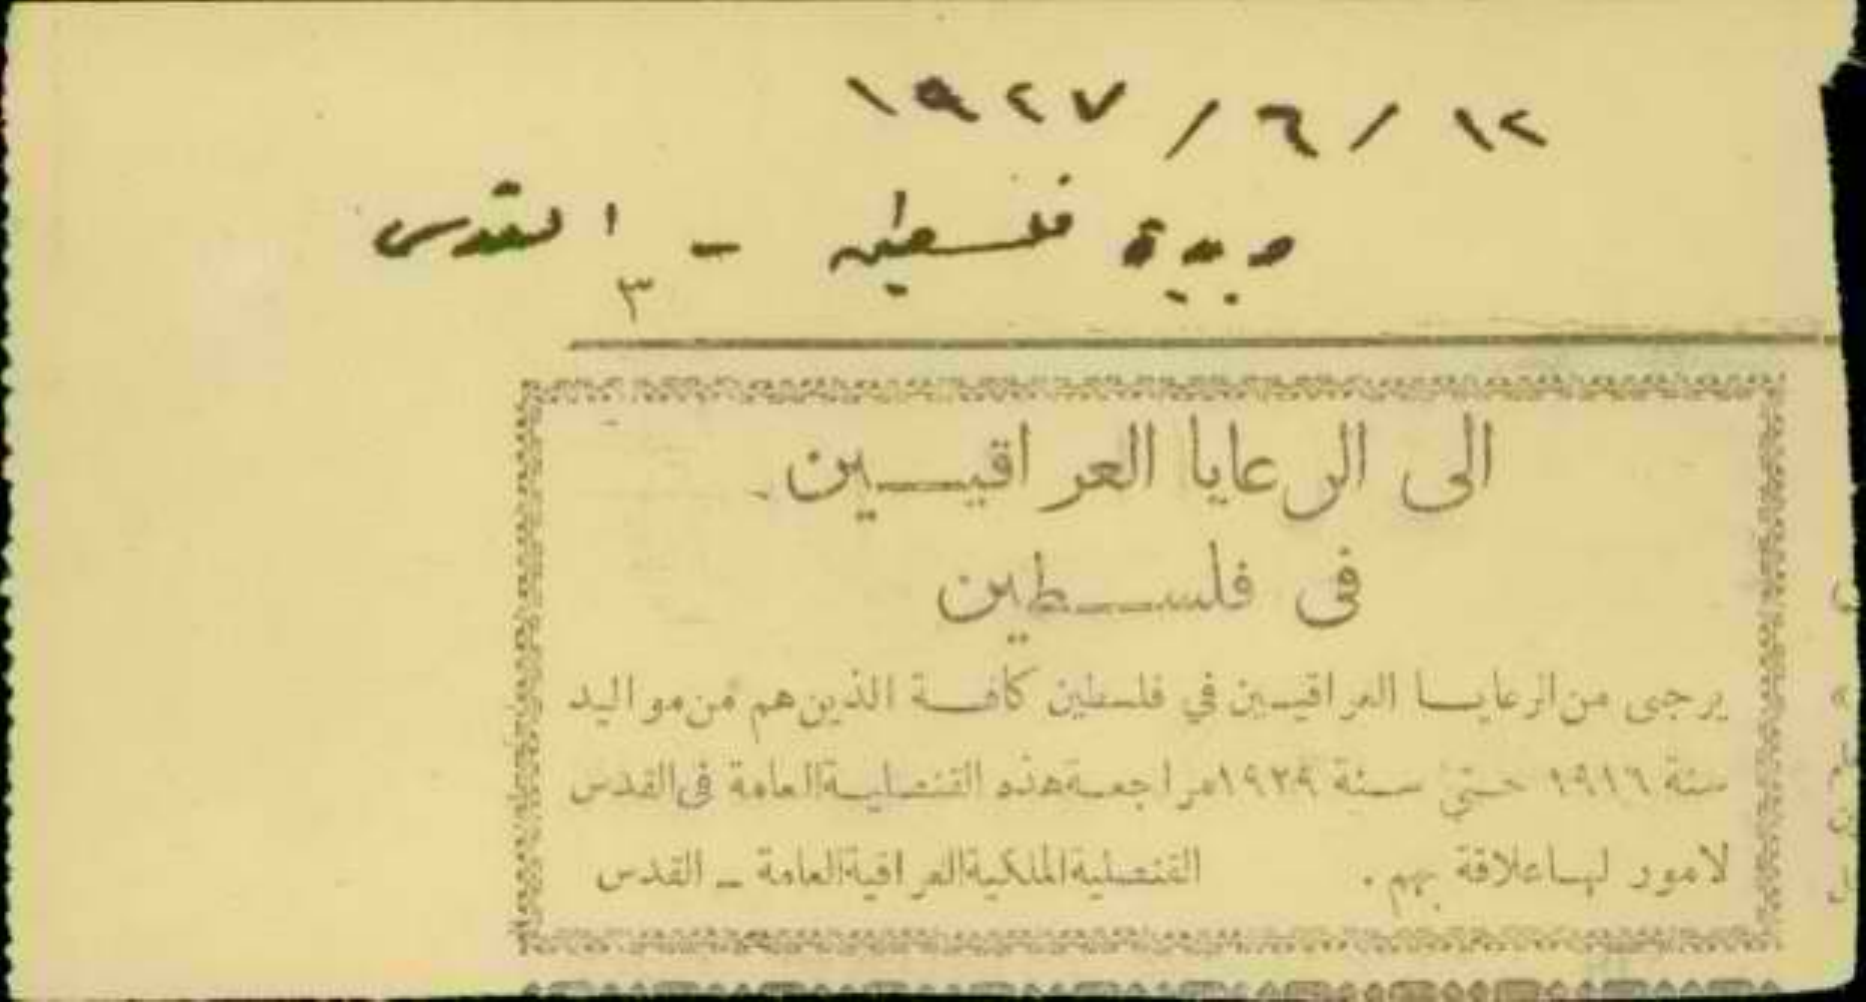 ١٢ / ٦ / ١٩٤٧
جريدة فلسطين - القدس
٣
الى الرعايا العراقيــين
فى فلســطين
يرجى من الرعايــا العراقيـين في فلسطين كافــة الذين هم من مواليد
سنة ١٩١٦ حتى سـنة ١٩٢٩ مراجعـة هذه القنصليـة العامة فى القدس
لامور لهـا علاقة بهم .
القنصلية الملكية العراقية العامة ــ القدس